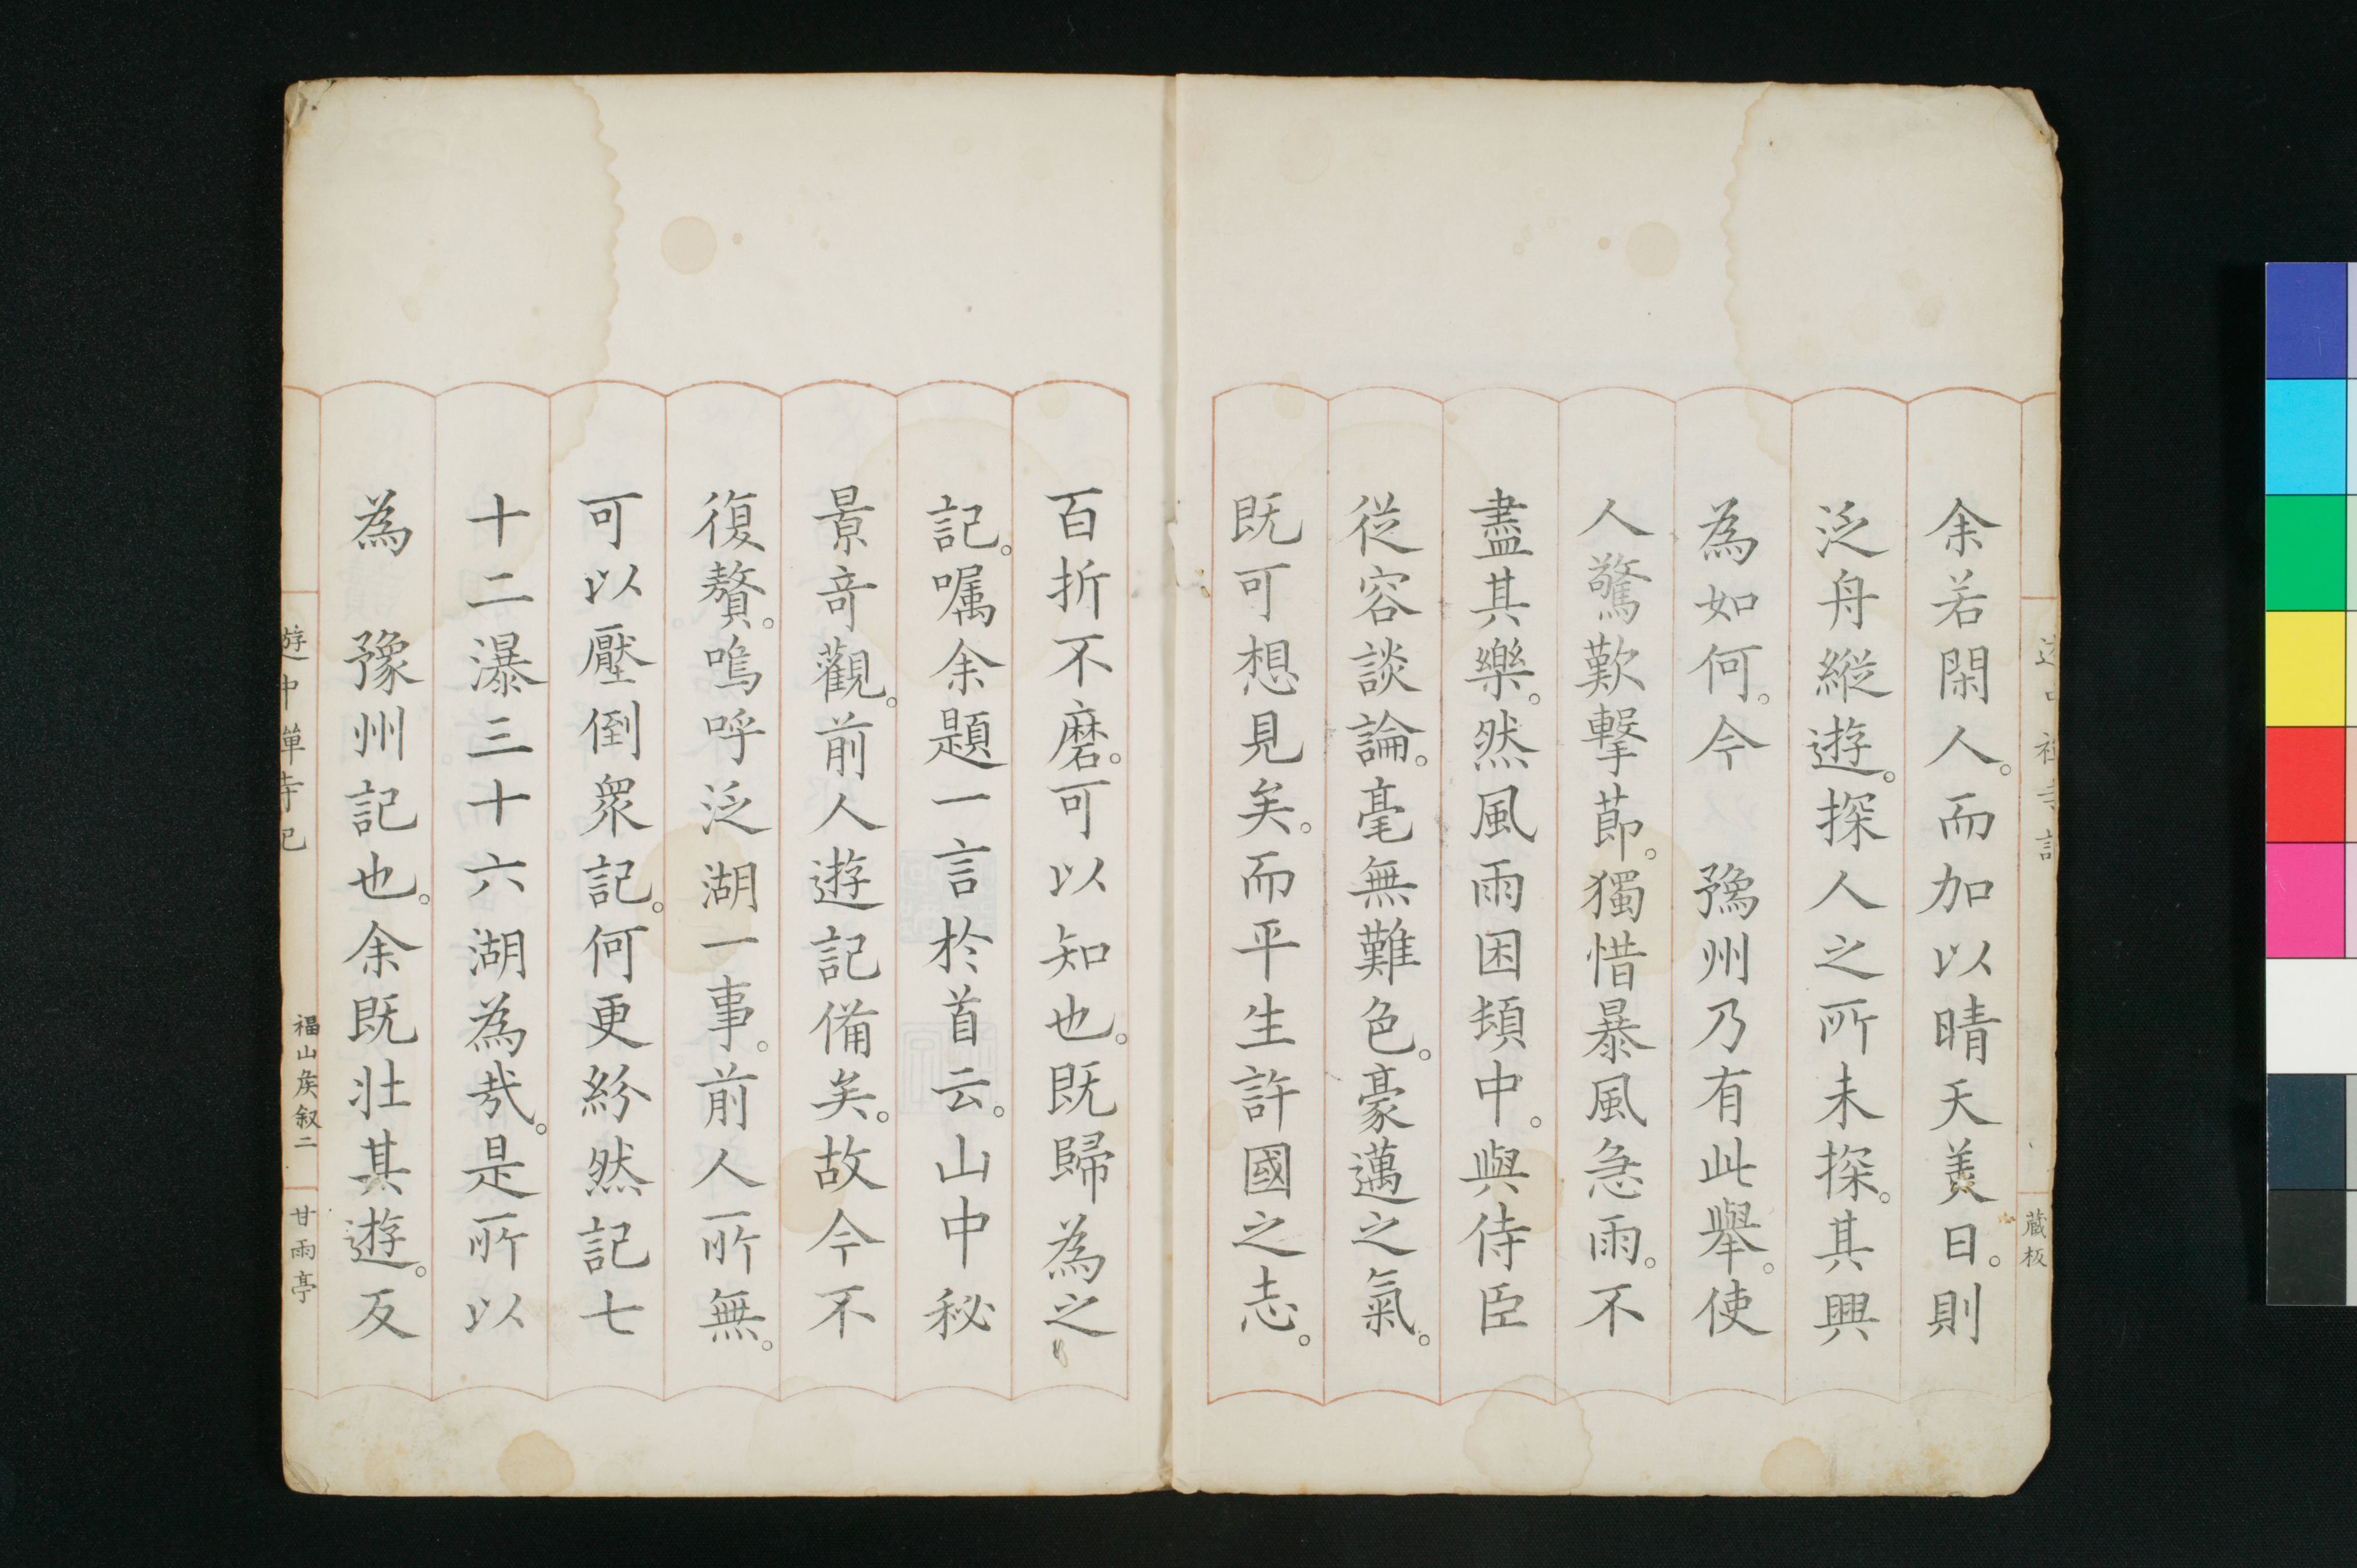 余若閑人。而加以晴天美日。則
泛舟縱遊。探人之所未探。其興
為如何。今　豫州乃有此舉。使
人驚歎擊節。獨惜暴風急雨。不
盡其樂。然風雨困頓中。與侍臣
從容談論。毫無難色。豪邁之氣。
既可想見矣。而平生許國之志。
百折不磨。可以知也。既歸為之
記。囑余題一言於首云。山中秘
景奇觀。前人遊記備矣。故今不
復贅。嗚呼泛湖一事。前人所無。
可以壓倒衆記。何更紛然記七
十二瀑三十六湖為哉。是所以
為　豫州記也。余既壯其遊。反
遊中禪寺記
福山矦叙二
甘雨亭
藏板